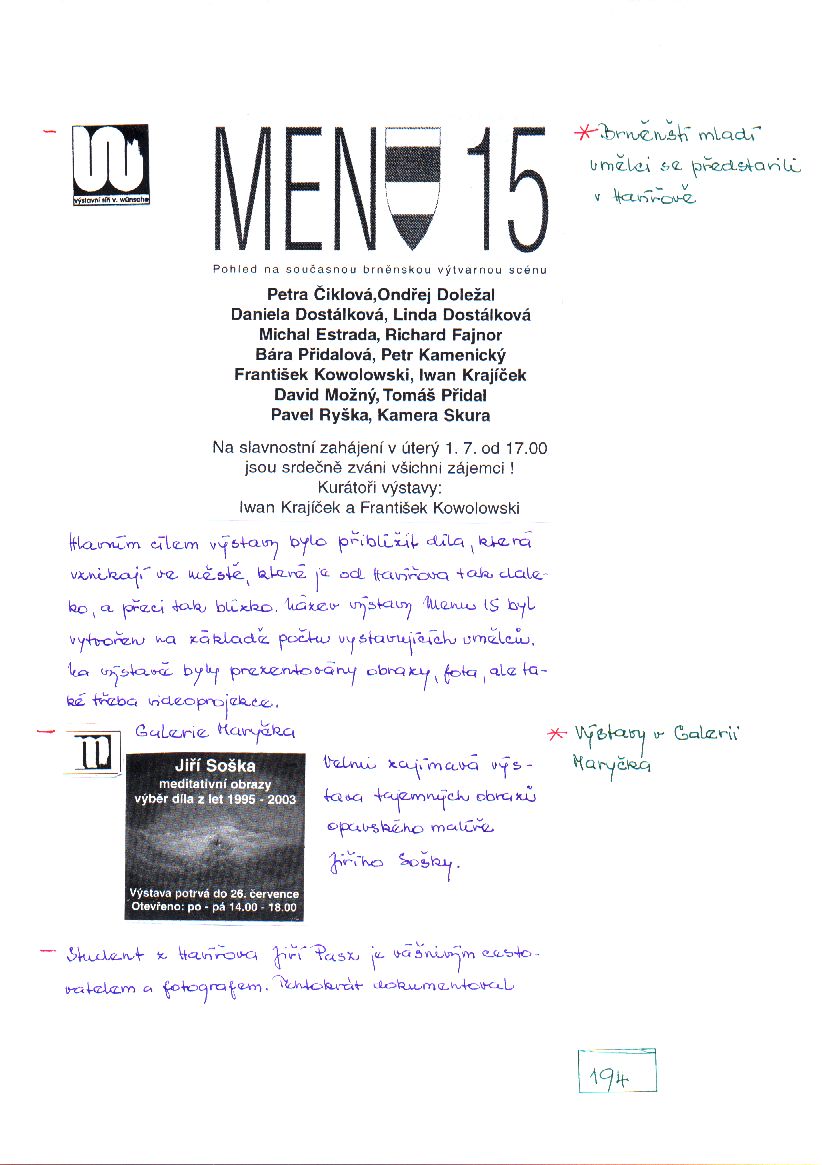 výstavní síň v. wünsche
MEN 15
Pohled na současnou brněnskou výtvarnou scénu
Petra Čiklová,Ondřej Doležal
Daniela Dostálková, Linda Dostálková
Michal Estrada, Richard Fajnor
Bára Přidalová, Petr Kamenický
František Kowolowski, Iwan Krajíček
David Možný, Tomáš Přidal
Pavel Ryška, Kamera Skura
Na slavnostní zahájení v úterý 1. 7. od 17.00
jsou srdečně zváni všichni zájemci !
Kurátoři výstavy:
Iwan Krajíček a František Kowolowski
* Brněnští mladí
umělci se představili
v Havířově
Hlavním cílem výstavy bylo přiblížit díla, která
vznikají ve městě, které je od Havířova tak dale-
ko, a přeci tak blízko. Název výstavy Menu 15 byl
vytvořen na základě počtu vystavujících umělců.
Na výstavě byly prezentovány obrazy, fota, ale ta-
ké třeba videoprojekce.
Galerie Maryčka
* Výstavy v Galerii
Maryčka
m
Jiří Soška
meditativní obrazy
výběr díla z let 1995 - 2003
Výstava potrvá do 26. července
Otevřeno: po - pá 14.00 - 18.00
Velmi zajímavá výs-
tava tajemných obrazů
opavského malíře
Jiřího Sošky.
Student z Havířova Jiří Pasz je vášnivým cesto-
vatelem a fotografem. Tentokrát dokumentoval
194